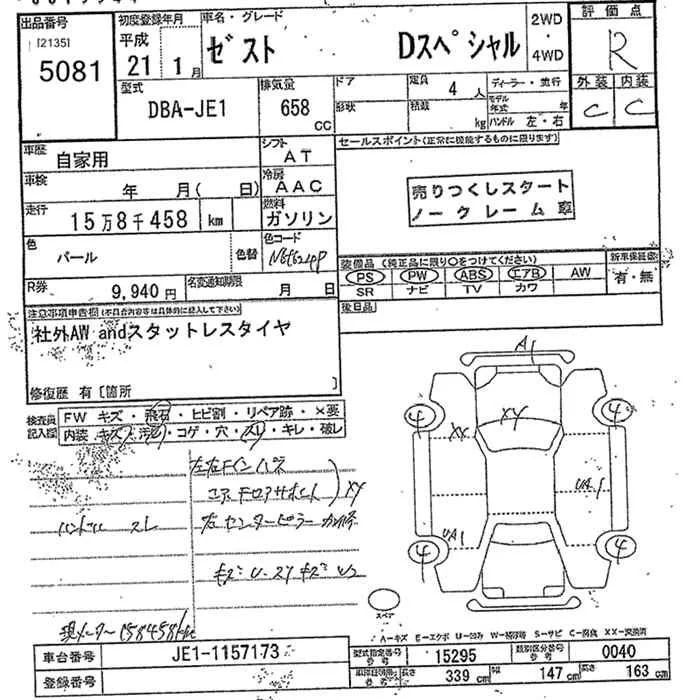 出品番号 初度登録年月 車名・グレード 2WD・4WD 評価点
[2135] 平成
5081 21 1月 ゼスト Dスペシャル R
型式 排気量 ドア 定員 4人 ディーラー・並行 外装 内装
DBA-JE1 658 CC 形状 積載 kg モデル年式 年 ハンドル 左・右 C C
車歴 自家用 シフト AT セールスポイント(正常に機能するものに限ります)
車検 年 月( 日) 冷房 AAC
売りつくしスタート
ノークレーム車
走行 15万8千458 km 燃料 ガソリン
色 パール 色替 色コード NH624P
装備品 (純正品に限り○をつけてください) 新車保証書
PS PW ABS エアB AW 有・無
SR ナビ TV カワ
R券 9,940円 名変通知期限 月 日
後日品
注意事項申告欄(不具合内容等は具体的に記入して下さい)
社外AW andスタットレスタイヤ
修復歴 有〔箇所 〕
検査員記入欄 FW キズ・飛石・ヒビ割・リペア跡・×要
内装 キズ・汚れ・コゲ・穴・スレ・キレ・破レ
A1
XY
XX
UA1
UA1
4 4 4 4
左右Fインパネ
コアサポート XY
ハンドル スレ
左センターピラー
現メーター158458km
スペア
A-キズ E-エクボ U-凹み W-補修跡 S-サビ C-腐食 XX-交換済
車台番号 JE1-1157173 型式指定番号 参考 15295 類別区分番号 参考 0040
登録番号 参考 長さ 339 cm 幅 147 cm 高さ 163 cm